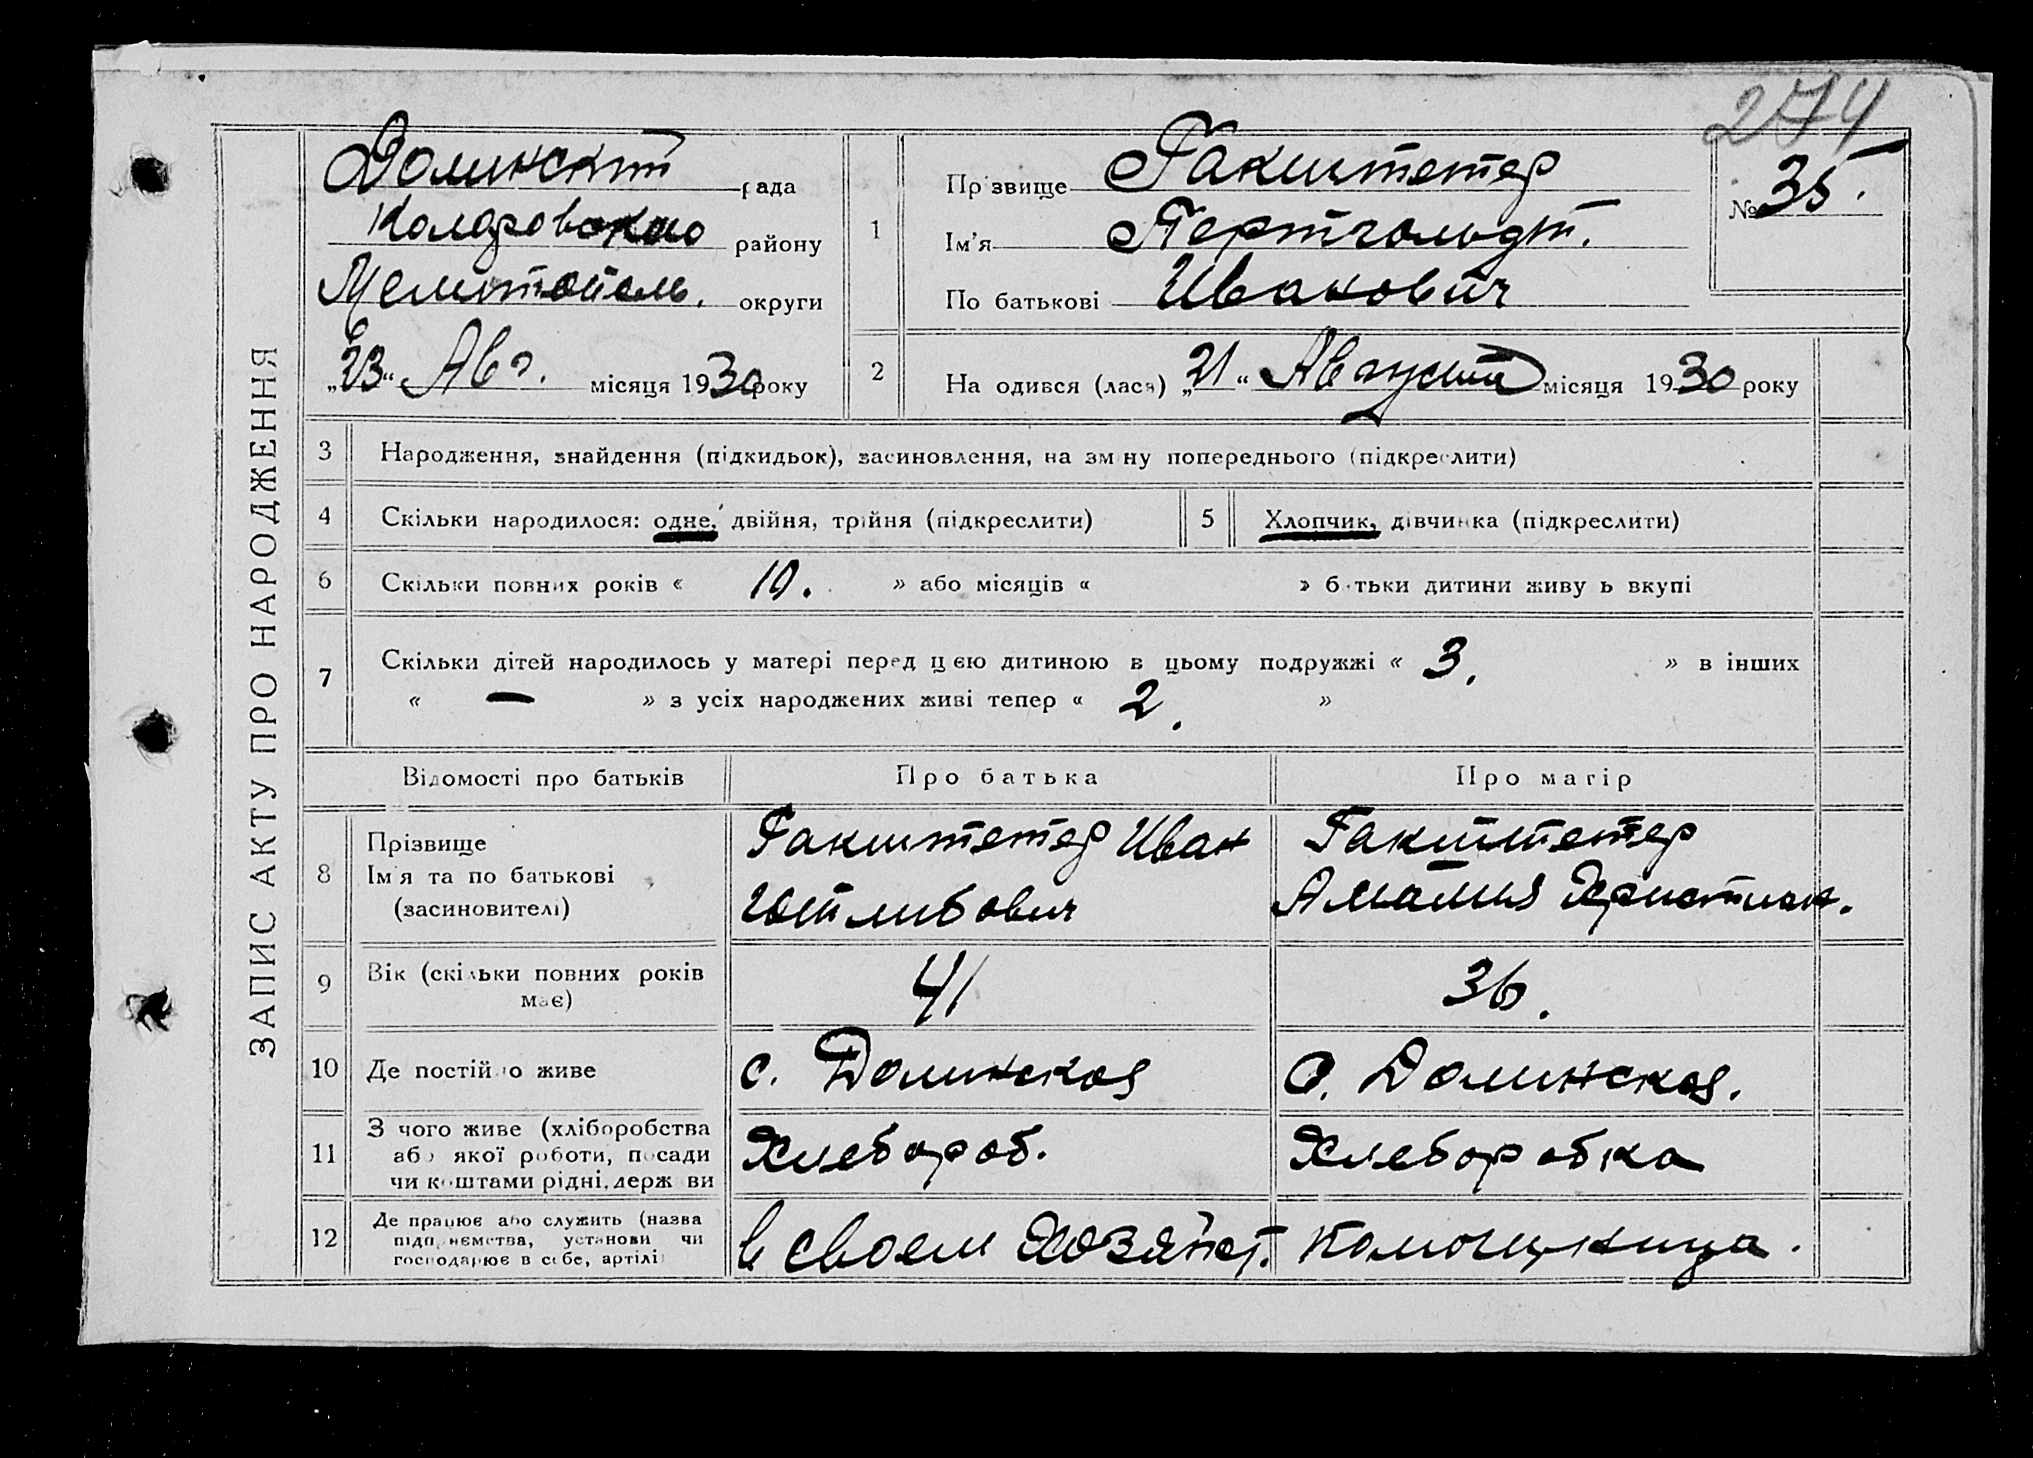 274
ЗАПИС АКТУ ПРО НАРОДЖЕННЯ
Долинский рада
Коларовского району
Мелитополь. округи
„23“ Авг. місяця 1930 року
1
Прізвище Гакштетер
Ім'я Пертгольдт.
По батькові Иванович
№ 35.
2
На одився (лася) „21“ Августа місяця 1930 року
3 Народження, знайдення (підкидьок), засиновлення, на зм ну попереднього (підкреслити)
4 Скільки народилося: одне, двійня, трійня (підкреслити)
5 Хлопчик, дівчинка (підкреслити)
6 Скільки повних років « 10. » або місяців « » б тьки дитини живу ь вкупі
7 Скільки дітей народилось у матері перед цією дитиною в цьому подружжі « 3. » в інших
« — » з усіх народжених живі тепер « 2. »
Відомості про батьків Про батька Про матір
8 Прізвище
Ім'я та по батькові
(засиновителі)
Гакштетер Иван
Готлибович
Гакштетер
Амалия Християн.
9 Вік (скільки повних років
має)
41
36.
10 Де постійно живе
с. Долинская
с. Долинская.
11 З чого живе (хліборобства
або якої роботи, посади
чи коштами рідні, держ ви
Хлебороб.
Хлеборобка
12 Де працює або служить (назва
підприємства, установи чи
господарює в себе, артілі
в своем хозяйст.
Помощница.